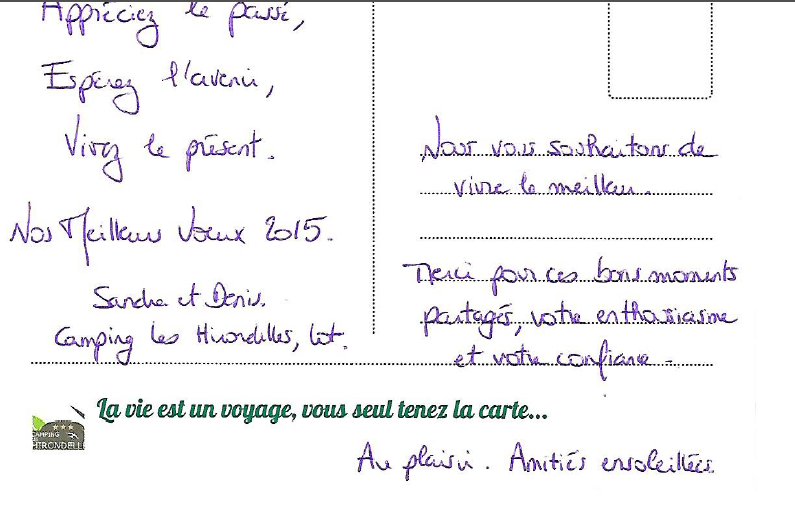 Appréciez le passé,
Espérez l'avenir,
Vivez le présent.
Nos Meilleurs Voeux 2015.
Sandra et Denis.
Camping les Hirondelles, Lot.
Nous vous souhaitons de
vivre le meilleur.
Merci pour ces bons moments
partagés, votre enthousiasme
et votre confiance.
La vie est un voyage, vous seul tenez la carte...
CAMPING
HIRONDELLE
Au plaisir. Amitiés ensoleillées